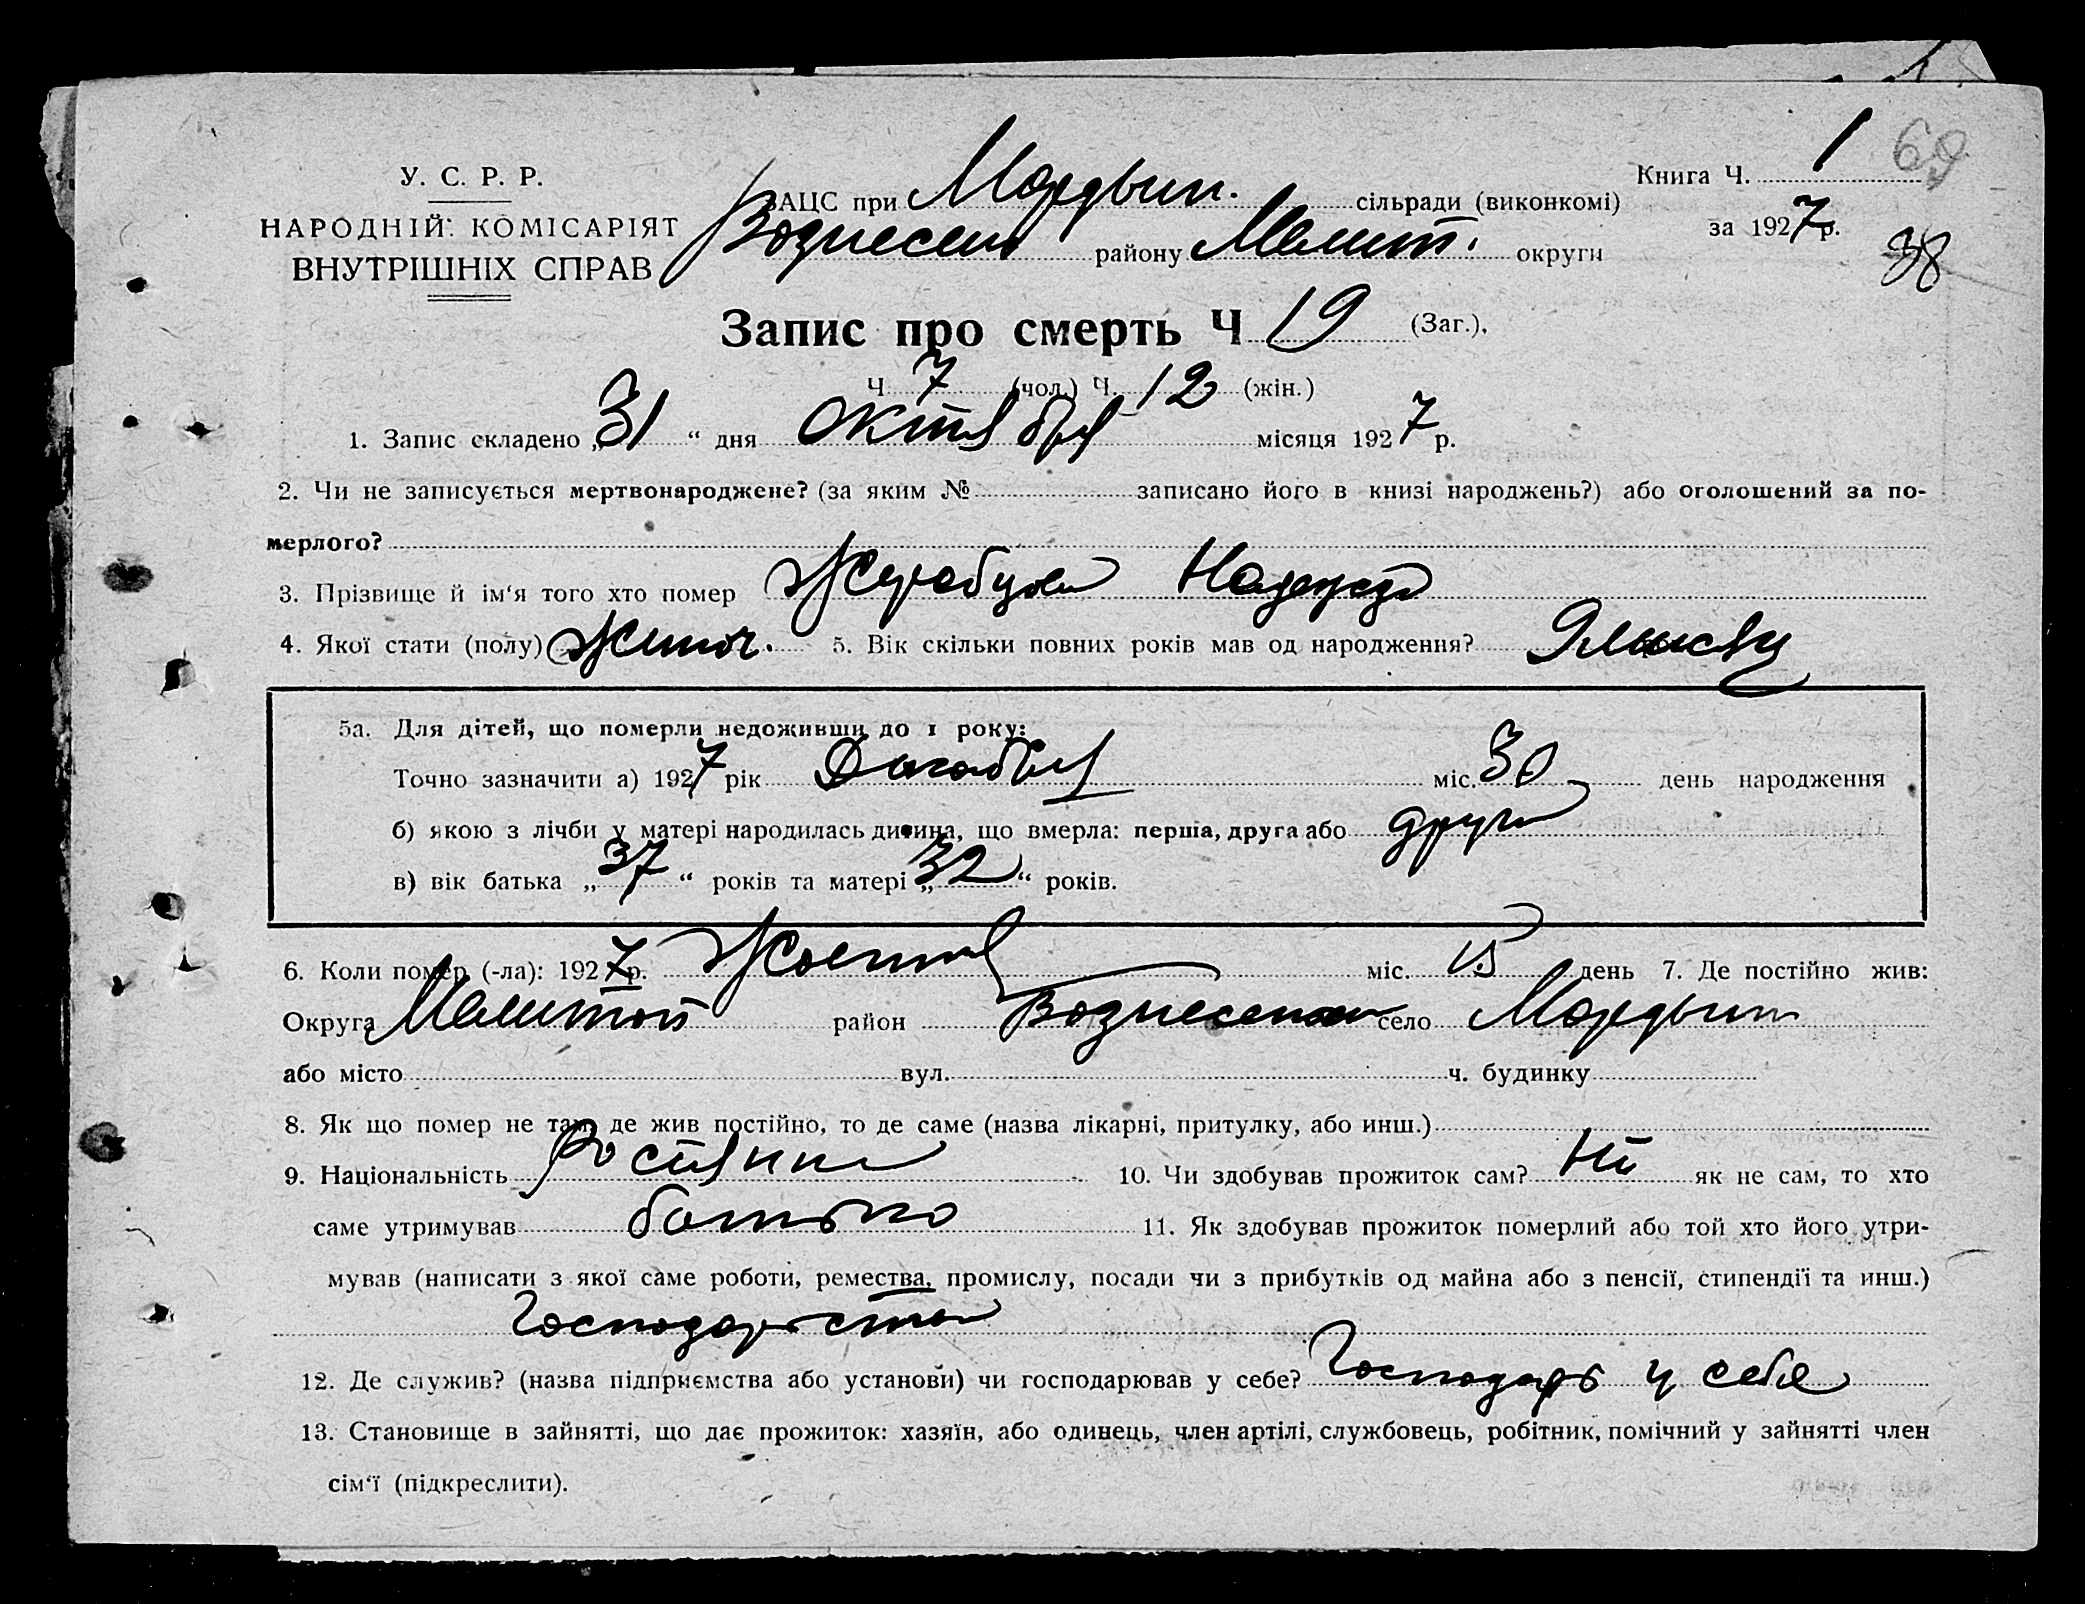 Книга Ч. 1 69
У. С. Р. Р.
НАРОДНІЙ КОМІСАРІЯТ
ВНУТРІШНІХ СПРАВ
ЗАЦС при Мордвын. сільради (виконкомі)
за 1927 р.
району Мелит. округи
38
Запис про смерть Ч 19 (Заг.),
Ч 7 (чол.) Ч. 12 (жін.)
1. Запис складено „31“ дня октября місяця 1927 р.
2. Чи не записується мертвонароджене? (за яким № записано його в книзі народжень?) або оголошений за по-
мерлого?
3. Прізвище й ім'я того хто помер Надежда
4. Якої стати (полу) 5. Вік скільки повних років мав од народження?
5а. Для дітей, що померли недоживши до 1 року:
Точно зазначити а) 1927 рік міс. 30 день народження
б) якою з лічби у матері народилась дитина, що вмерла: перша, друга або друга
в) вік батька „37“ років та матері „32“ років.
6. Коли помер (-ла): 1927 р. міс. 15 день 7. Де постійно жив:
Округа район село Мордвын
або місто вул. ч. будинку
8. Як що помер не там, де жив постійно, то де саме (назва лікарні, притулку, або инш.)
9. Національність 10. Чи здобував прожиток сам? Ні як не сам, то хто
саме утримував батько 11. Як здобував прожиток померлий або той хто його утри-
мував (написати з якої саме роботи, ремества, промислу, посади чи з прибутків од майна або з пенсії, стипендії та инш.)
Господарства
12. Де служив? (назва підприємства або установи) чи господарював у себе? Господарь у себя
13. Становище в зайнятті, що дає прожиток: хазяїн, або одинець, член артілі, службовець, робітник, помічний у зайнятті член
сім'ї (підкреслити).